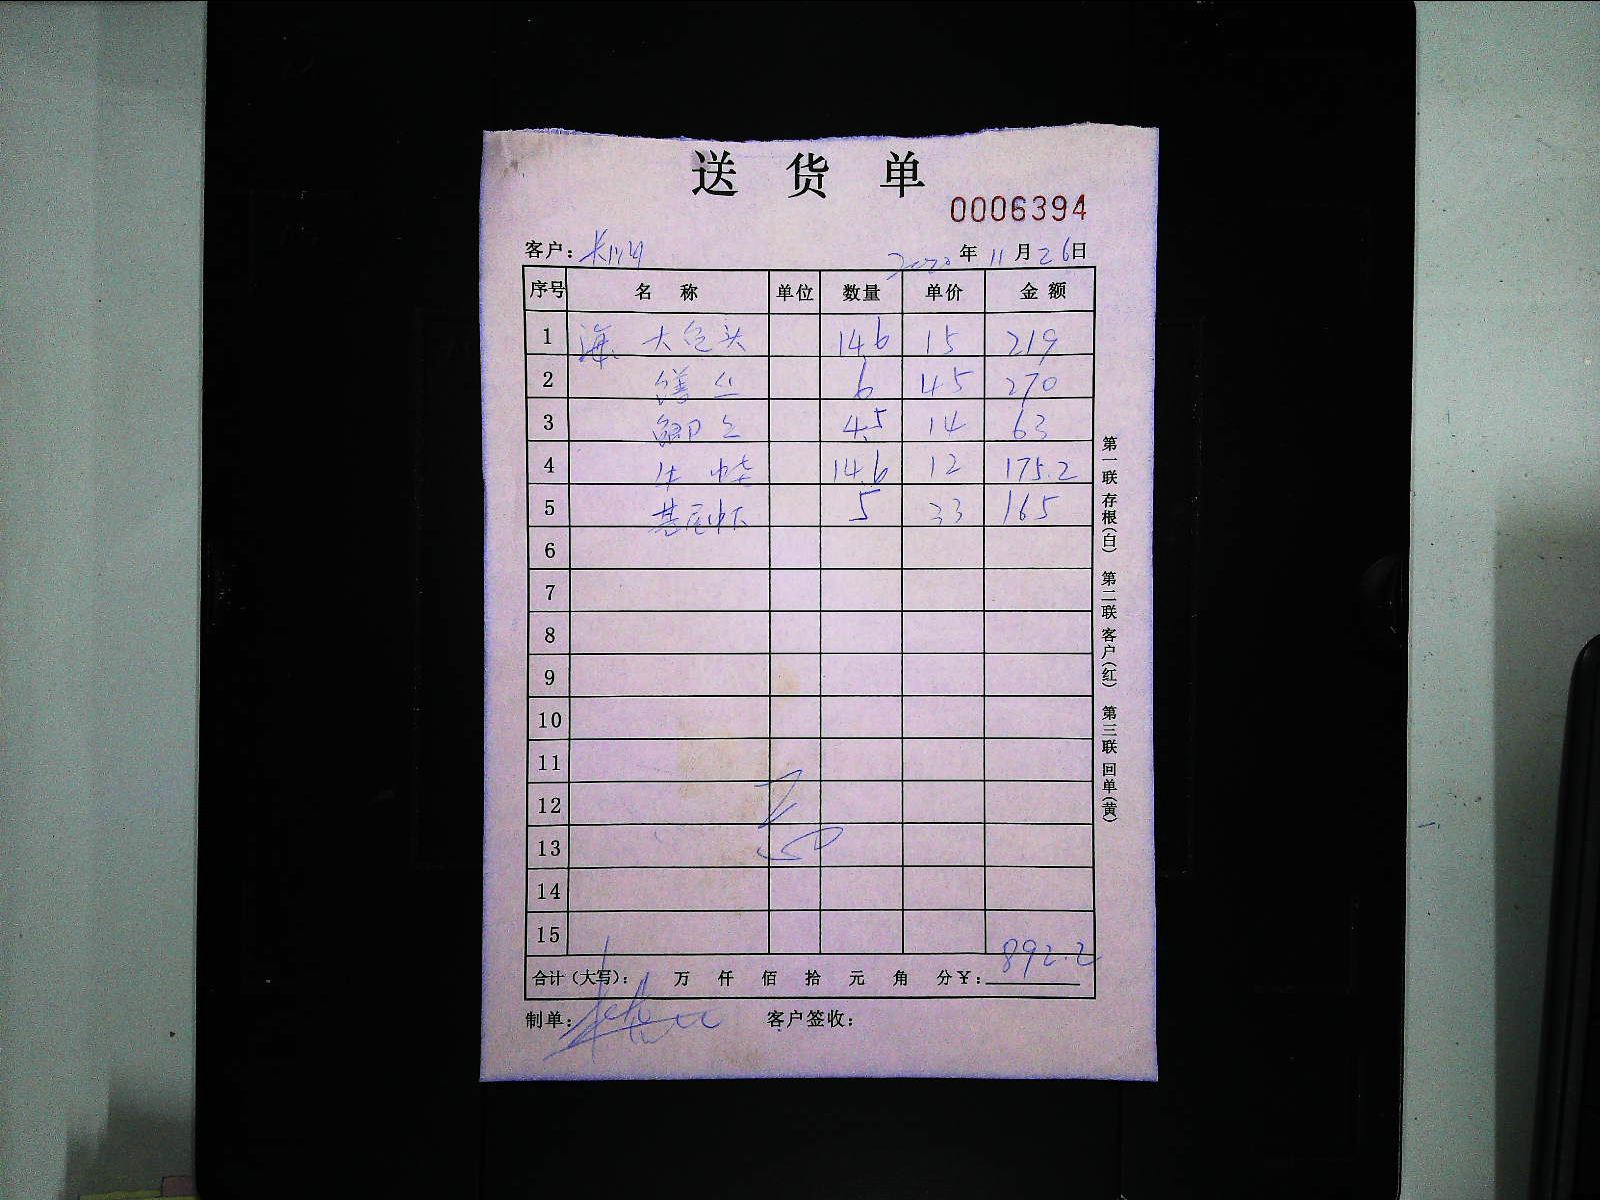 送 货 单
0006394
客户: 2020年11月26日
序号 名 称 单位 数量 单价 金额
1 海 大包头 14.6 15 219
2 鳝丝 6 45 270
3 鲫 4.5 14 63
4 牛蛙 14.6 12 175.2
5 基围虾 5 33 165
6
7
8
9
10
11
12
13
14
15
合计(大写): 万 仟 佰 拾 元 角 分¥: 892.2
制单: 客户签收:
第一联 存根(白) 第二联 客户(红) 第三联 回单(黄)